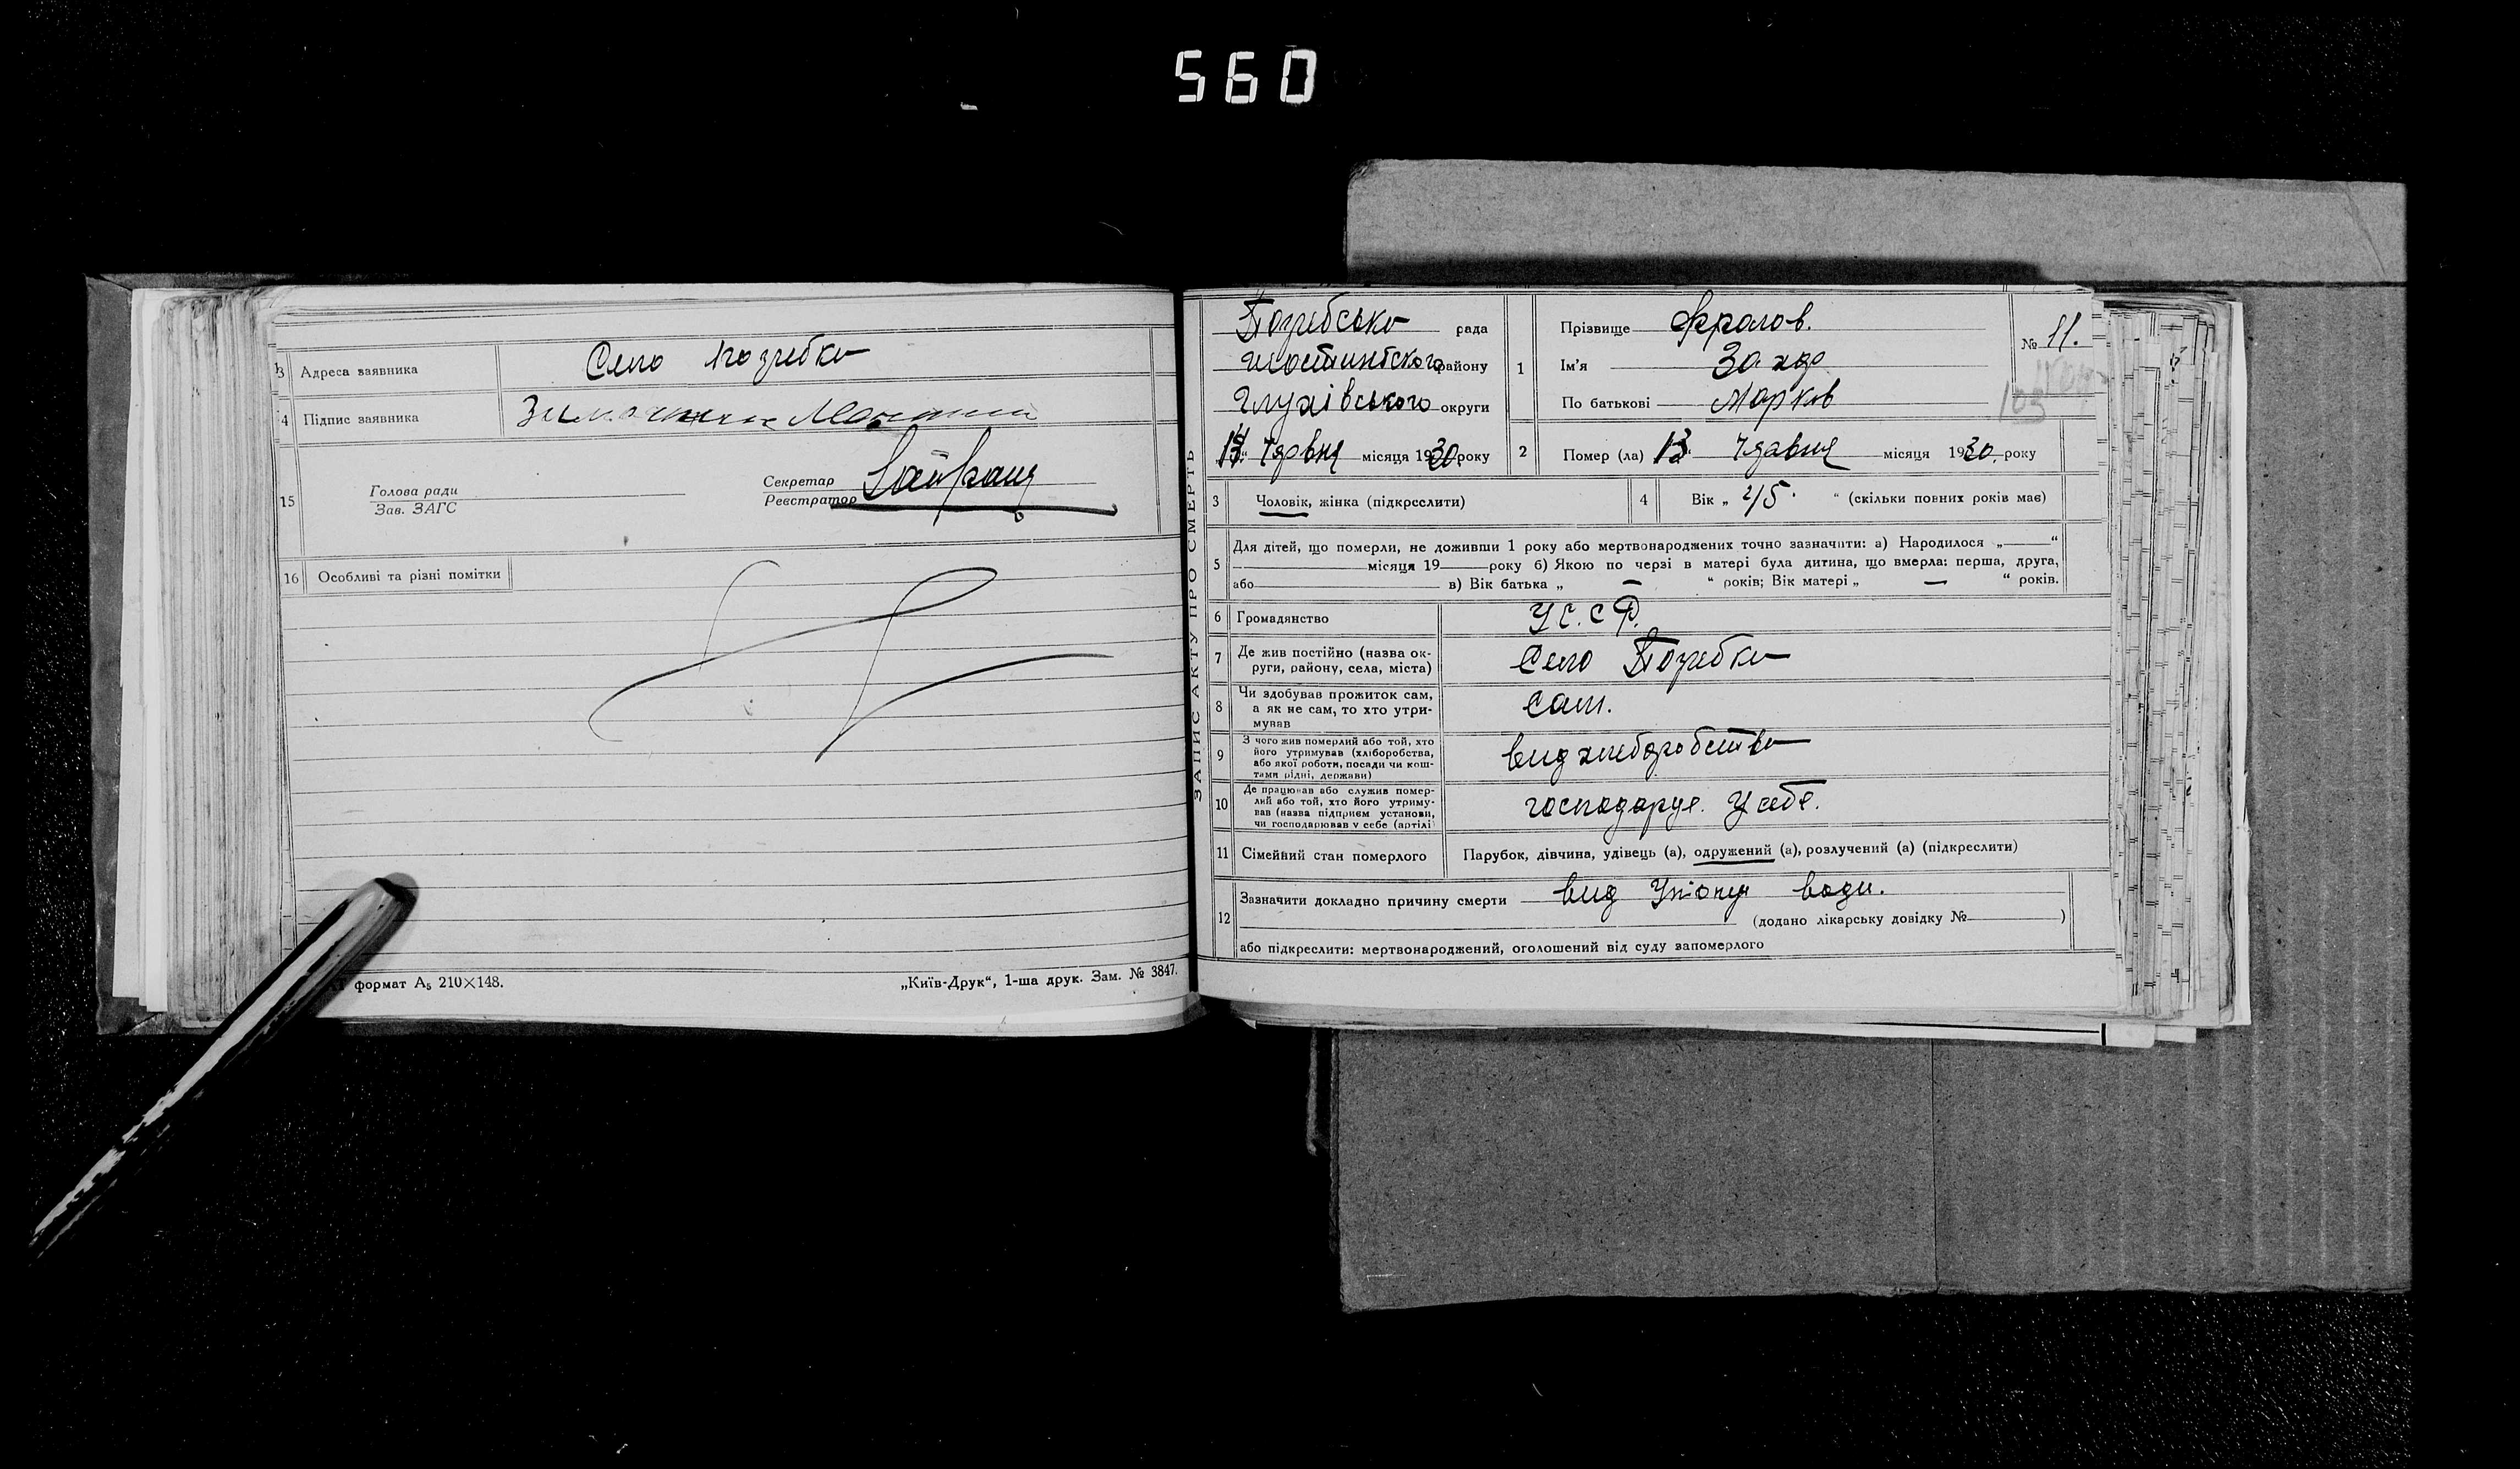 560
3 Адреса заявника Село Погребки
4 Підпис заявника
Секретар
Реєстратор
15 Голова ради
Зав. ЗАГС
16 Особливі та різні помітки
формат А5 210×148.
„Київ-Друк“, 1-ша друк. Зам. № 3847.
ЗАПИС АКТУ ПРО СМЕРТЬ
рада
району
Глухівського округи
Червня місяця 1930 року
1 Прізвище Фролов.
Ім'я Захар
По батькові Марков
№ 11.
2 Помер (ла) 13 місяця 1930. року
3 Чоловік, жінка (підкреслити)
4 Вік „ “ (скільки повних років має)
5 Для дітей, що померли, не доживши 1 року або мертвонароджених точно зазначити: а) Народилося „ — “
місяця 19 — року б) Якою по черзі в матері була дитина, що вмерла: перша, друга,
або — в) Вік батька „ — “ років; Вік матері „ — “ років.
6 Громадянство У С. С Р.
7 Де жив постійно (назва ок-
руги, району, села, міста) Село Погребки
8 Чи здобував прожиток сам,
а як не сам, то хто утри-
мував сам.
9 З чого жив померлий або той, хто
його утримував (хліборобства,
або якої роботи, посади чи кош-
тами рідні, держави)
10 Де працював або служив помер-
лий або той, хто його утриму-
вав (назва підприєм установи,
чи господарював у себе (артілі) господарує. У себе.
11 Сімейний стан померлого Парубок, дівчина, удівець (а), одружений (а), розлучений (а) (підкреслити)
12 Зазначити докладно причину смерти вид води.
(додано лікарську довідку № )
або підкреслити: мертвонароджений, оголошений від суду запомерлого